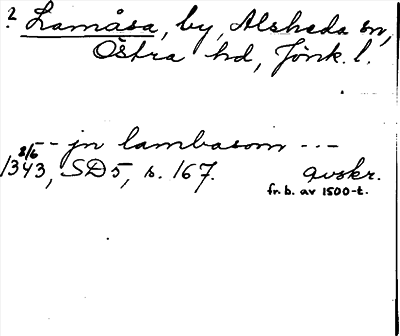 ? Lamåsa, by, Alsheda sn,
Östra hd, Jönk. l.
-- jn lambasom ---
8/6
1343, SD 5, s. 167. avskr.
fr. b. av 1500-t.